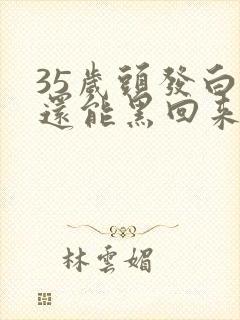 35歲頭發白
還能黑回来
林雲媚